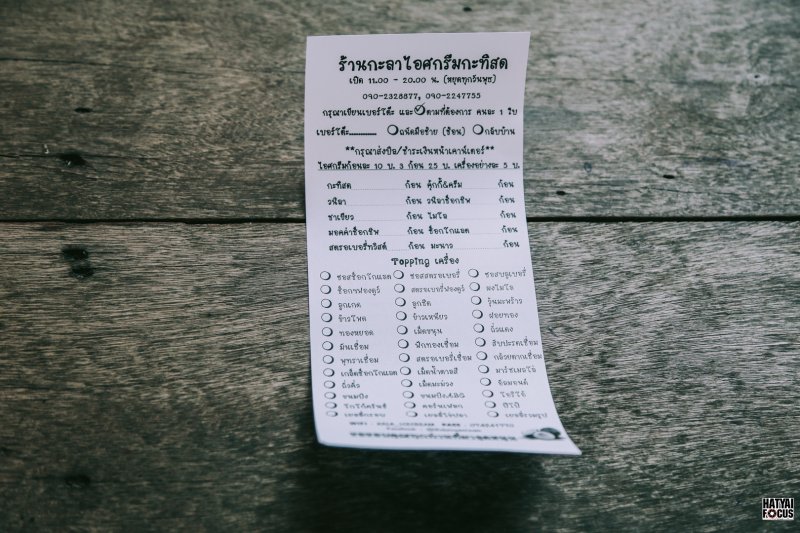 ร้านกะลาไอศกรีมกะทิสด
เปิด 11.00 - 20.00 น. (หยุดทุกวันพุธ)
090-2328877, 090-2247755
กรุณาเขียนเบอร์โต๊ะ และ ตามที่ต้องการ คนละ 1 ใบ
เบอร์โต๊ะ............... ถนัดมือซ้าย (ช้อน) กลับบ้าน
**กรุณาส่งบิล/ชำระเงินหน้าเคาน์เตอร์**
ไอศกรีมก้อนละ 10 บ. 3 ก้อน 25 บ. เครื่องอย่างละ 5 บ.
กะทิสด ก้อน คุ๊กกี้&ครีม ก้อน
วนิลา ก้อน วนิลาช็อกชิพ ก้อน
ชาเขียว ก้อน ไมโล ก้อน
มอคค่าช็อกชิพ ก้อน ช็อกโกแลต ก้อน
สตรอเบอรี่ทวิสต์ ก้อน มะนาว ก้อน
Topping เครื่อง
ซอสช็อกโกแลต ซอสสตรอเบอรี่ ซอสบลูเบอรี่
ช็อกฯฟองดูว์ สตรอเบอรี่ฟองดูว์ ผงไมโล
ลูกเกด ลูกชิด วุ้นมะพร้าว
ข้าวโพด ข้าวเหนียว ฝอยทอง
ทองหยอด เม็ดขนุน ถั่วแดง
มันเชื่อม ฟักทองเชื่อม สับปะรดเชื่อม
พุทราเชื่อม สตรอเบอรี่เชื่อม กล้วยตากเชื่อม
เกล็ดช็อกโกแลต เม็ดน้ำตาลสี มาร์ชเมลโล่
ถั่วคั่ว เม็ดมะม่วง อัลมอนด์
ขนมปัง ขนมปังABG โอริโอ้
โกโก้ครันช์ คอร์นเฟลก ปีโป้
เยลลี่กรอบ เยลลี่ไข่ปลา เยลลี่รวมรูป
HATYAI
FOCUS